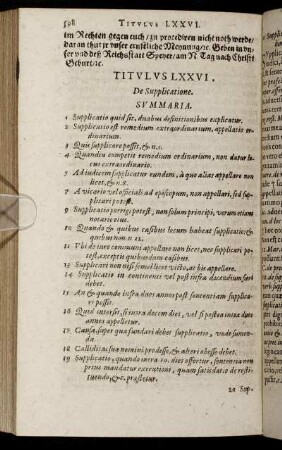 598 TITVLVS LXXVI.
im Rechten gegen euch zu procediren nicht noth werde/
dar an thut jr vnser ernstliche Meynung/rc. Geben in vn-
ser vnd deß Reichs statt Speyer/am N Tag nach Christi
Geburt/rc.
TITVLVS LXXVI.
De Supplicatione.
SVMMARIA.
1 Supplicatio quid sit, duabus definitionibus explicatur.
2 Supplicatio est remedium extraordinarium, appellatio or-
dinarium.
3 Quis supplicare possit, & n.1.
4 Quamdiu competit remedium ordinarium, non datur lo-
cus extraordinario.
5 Ad iudicem supplicatur eundem, à quo aliàs appellare non
licet, & n.8.
7 A vicario vel officiali ad episcopum, non appellari, sed sup-
plicari potest.
9 Supplicatio porrigi potest, non solùm principi, verumetiam
notario eius.
10 Quando & quibus casibus locum habeat supplicatio; &
quib. in non n.12.
11 Vbi de iure communi appellare non licet, nec supplicari po-
test, exceptis quibusdam casibus.
13 Supplicari non nisi semel licet victo, ac his appellare.
14 Supplicatio in continenti vel post infra decendium fieri
debet.
15 An & quando infra duos annos post sententiam supplica-
ri possit.
16 Quid intersit, si intra decem dies, vel si postea intra duos
annos appelletur.
17 Causa, super qua fundari debet supplicatio, vnde sumen-
da.
18 Calliditas sua nemini prodesse, & alteri obesse debet.
19 Supplicatio, quando intra 10. dies offertur, sententia non
prius mandatur executioni, quam satisdatio de resti-
tuendo, &c. præstetur.
20 Sup-